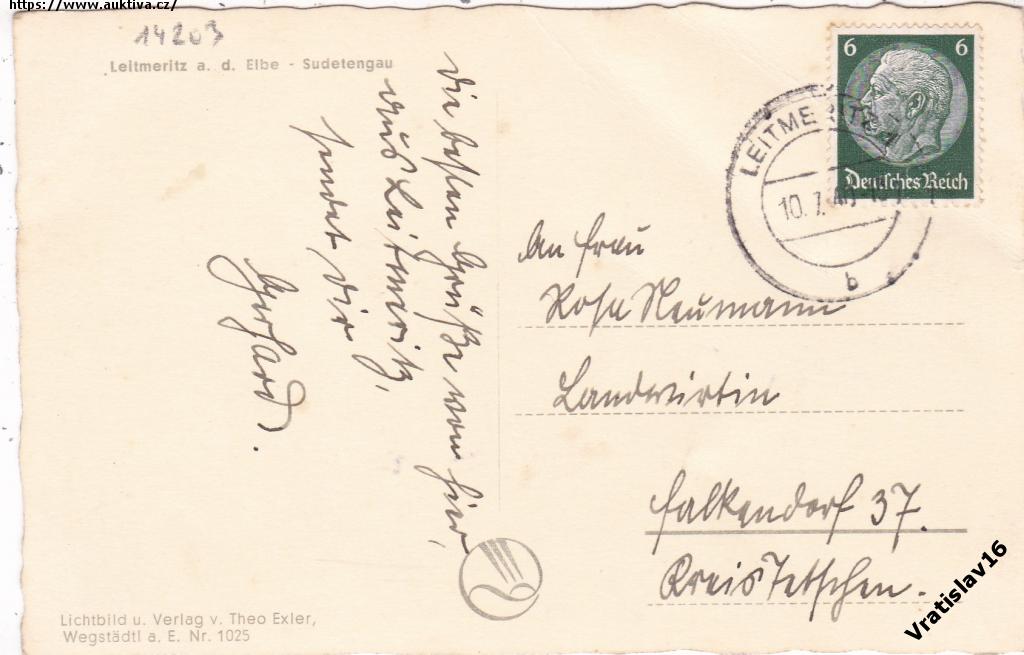 https://www.auktiva.cz/
14203
Leitmeritz a. d. Elbe - Sudetengau
Die besten Grüße von hier,
aus Leitmeritz,
sendet dir
Gerhard.
6 6
Deutsches Reich
LEITMERITZ 1
10.7.40
b
An Frau
Rosa Neumann
Landwirtin
Falkendorf 37.
Kreis Tetschen.
Lichtbild u. Verlag v. Theo Exler,
Wegstädtl a. E. Nr. 1025
Vratislav16